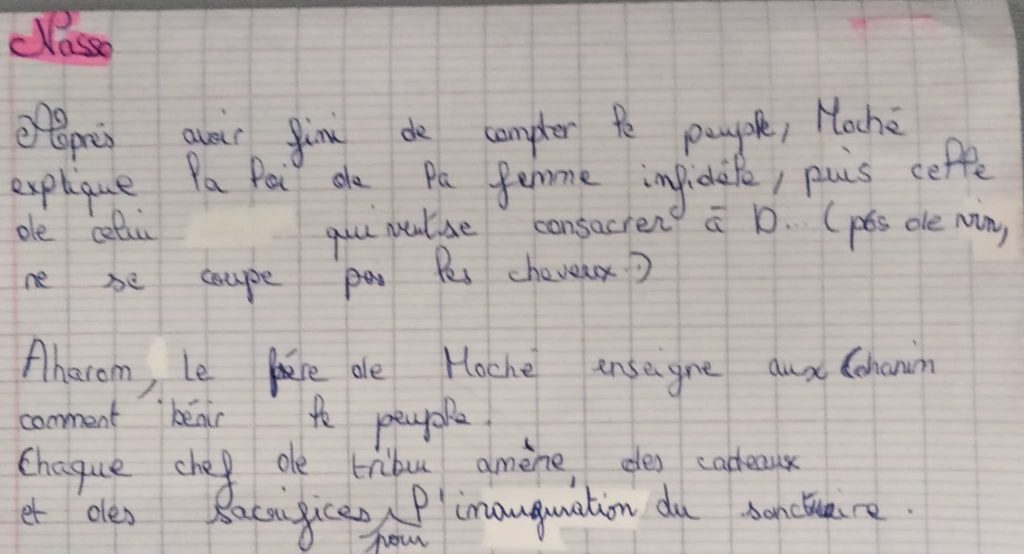 Nasso
Après avoir fini de compter le peuple, Moché
explique la loi de la femme infidèle, puis celle
de celui qui veut se consacrer à D... (pas de vin,
ne se coupe pas les cheveux.)
Aharon, le frère de Moché enseigne aux Cohanim
comment bénir le peuple.
Chaque chef de tribu amène des cadeaux
et des sacrifices pour l'inauguration du sanctuaire.